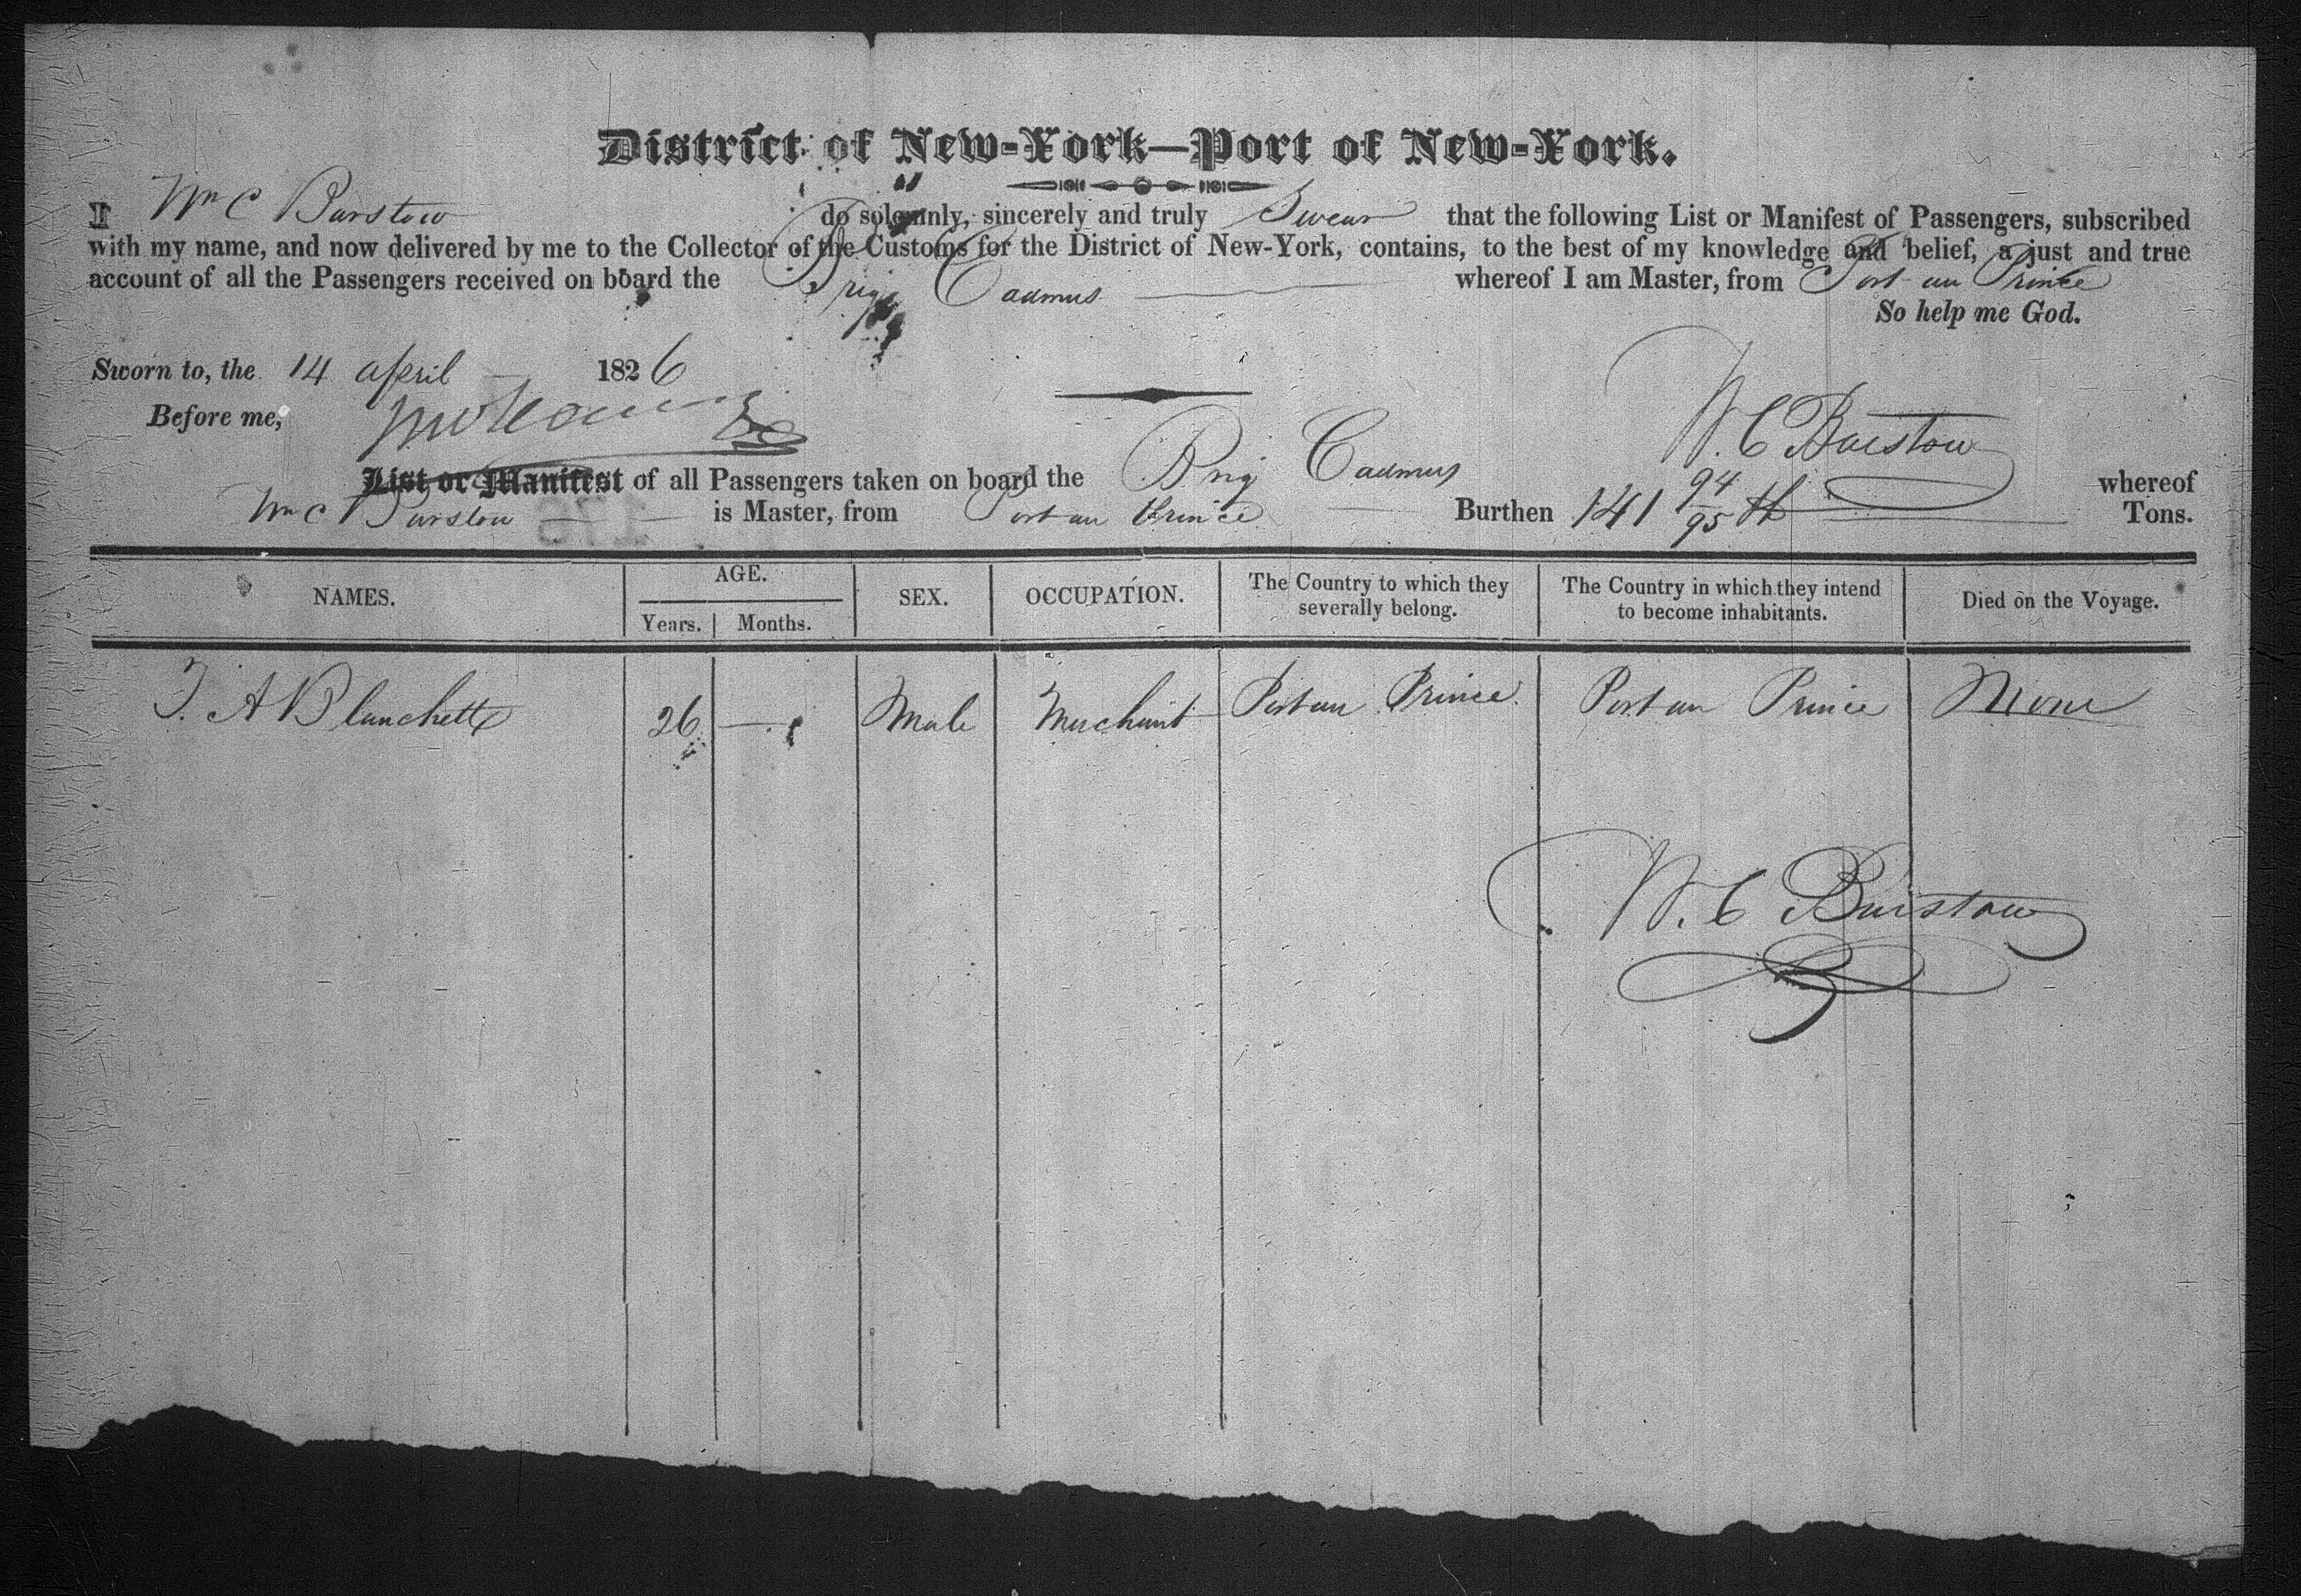 District of New-York—Port of New-York.
I Wm C Barstow do solemnly, sincerely and truly Swear that the following List or Manifest of Passengers, subscribed
with my name, and now delivered by me to the Collector of the Customs for the District of New-York, contains, to the best of my knowledge and belief, a just and true
account of all the Passengers received on board the Brig Cadmus whereof I am Master, from Port au Prince
So help me God.
Sworn to, the 14 april 1826
Before me,
W. C Barstow
List or Manifest of all Passengers taken on board the Brig Cadmus whereof
Wm C Barstow is Master, from Port au Prince Burthen 141 94/95 th Tons.
175
NAMES. AGE. Years. Months. SEX. OCCUPATION. The Country to which they severally belong. The Country in which they intend to become inhabitants. Died on the Voyage.
T. A Blanchette 26 — Male Merchant Port au Prince Port au Prince None
W. C Barstow